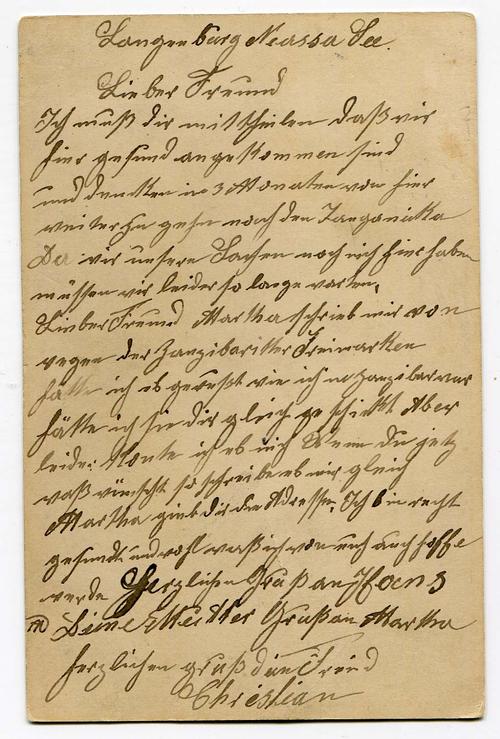 Langenburg Neassa See.
Lieber Freund
Ich muß dir mittheilen daß wir
hier gesund angekommen sind
und denken in 3 Monaten von hier
weiter zu gehn nach den Tanganicka
Da wir unsere Sachen noch nich hier haben
müssen wir leider so lange warten,
Lieber Freund Martha schrieb mir von
wegen der Zanzibaritter Freimarken
hätte ich es gewußt wie ich in Zanzibar war
hätte ich sie dir gleich geschickt Aber
leider konte ich es nich Wenn du jetz
waß wünscht so schreibe es mir gleich
Martha giebt dir die Adresse. Ich bin recht
gesundt und wohl waß ich von euch auch hoffe
werde Herzlichen Gruß an Hans
Gruß an Martha
herzlichen gruß dein Freind
Christian